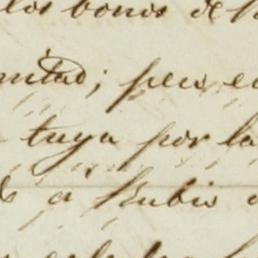 los bonos de
mitad; pero e
tuya por la
a Rubio